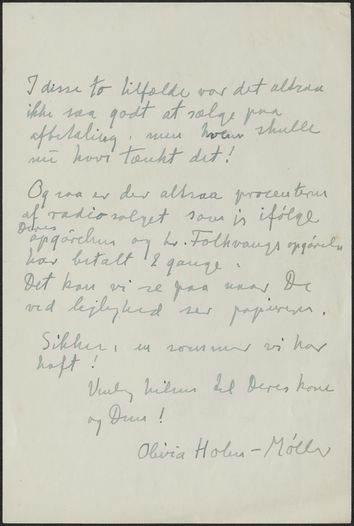 I disse to tilfælde var det altsaa
ikke saa godt at sælge paa
afbetaling, men hvem skulle
nu have tænkt det!
Og saa er der altsaa procenterne
af radiosalget som jeg ifølge
Deres
opgørelse og hr. Folkvangs opgørelse
har betalt 2 gange.
Det kan vi se paa naar De
ved lejlighed ser papirerne.
Sikken en sommer vi har
haft!
Venlig hilsen til Deres kone
og Dem!
Olivia Holm-Møller